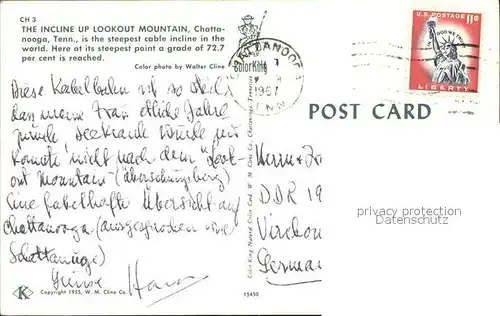 CH 3
THE INCLINE UP LOOKOUT MOUNTAIN, Chatta-
nooga, Tenn., is the steepest cable incline in the
world. Here at its steepest point a grade of 72.7
per cent is reached.
Color photo by Walter Cline
ColorKing
CHATTANOOGA
1967
TENN
U.S. POSTAGE 11¢
IN GOD WE TRUST
LIBERTY
POST CARD
Diese Kabelbahn ist so steil
das meine Frau etliche Jahre
zurück seekrank wurde und
konnte nicht nach dem "Look-
out Mountain" (
Eine fabelhafte Übersicht auf
Chattanooga (ausgesprochen wie
Schattanuga)
Grüsse Hans
Herrn &
DDR 19
German
privacy protection
Datenschutz
Color King Natural Color Card, W. M. Cline Co., Chattanooga, Tennessee
K
Copyright 1955, W. M. Cline Co.
19450